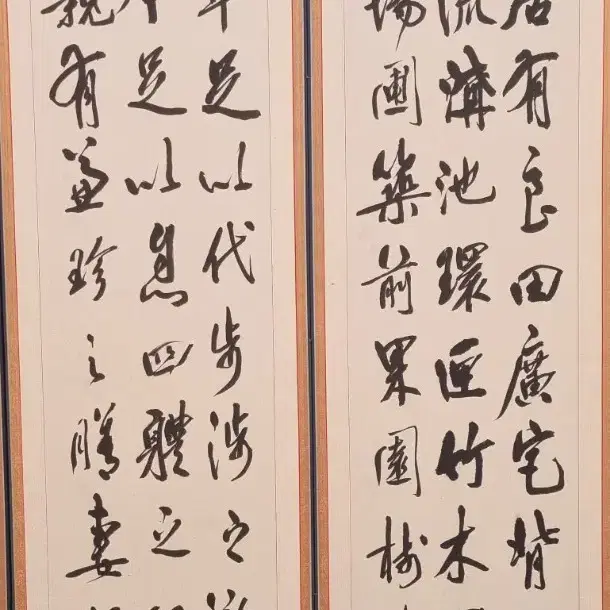 居有良田廣宅背
流溝池環匝竹木
場圃築前果園樹
車足以代步涉之難
足以息四體之
親有兼珍之膳妻